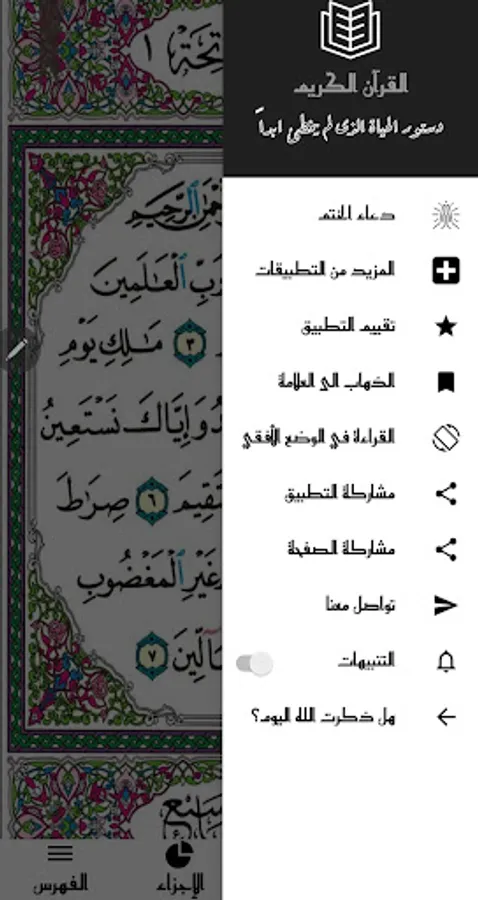 القرآن الكريم
دستور الحياة الذى لم يخطئ ابداً
دعاء الختم
المزيد من التطبيقات
تقييم التطبيق
الذهاب الى العلامة
القراءة في الوضع الأفقي
مشاركة التطبيق
مشاركة الصفحة
تواصل معنا
التنبيهات
هل ذكرت الله اليوم؟
تحة ١
ٱلرَّحِيمِ
رَبِّ ٱلْعَٰلَمِينَ
٣ مَٰلِكِ يَوْمِ
وَإِيَّاكَ نَسْتَعِينُ
٦ صِرَٰطَ
غَيْرِ ٱلْمَغْضُوبِ
٧
سَبْع
الإجزاء
الفهرس